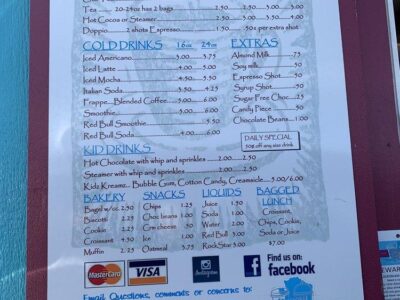 Tea ...... 20-24oz has 2 bags ...... 2.50 2.50 2.50
Hot Cocoa or Steamer ...... 2.50 3.00 3.50 4.00
Doppio ...... 2 shots Espresso ...... 1.50 50¢ per extra shot
COLD DRINKS 16oz 24oz
Iced Americano 3.00 3.75
Iced Latte 4.00 5.00
Iced Mocha 4.50 5.50
Italian Soda 3.50 4.25
Frappe...Blended Coffee 5.00 6.00
Smoothie 5.00 6.00
Red Bull Smoothie 5.50
Red Bull Soda 4.00 6.00
EXTRAS
Almond Milk .75
Soy milk .50
Espresso Shot .50
Syrup Shot .50
Sugar Free Choc .25
Candy Piece .50
Chocolate Beans 1.00
DAILY SPECIAL
50¢ off any size drink
KID DRINKS
Hot Chocolate with whip and sprinkles 2.00 2.50
Steamer with whip and sprinkles 2.00 2.50
Kidz Kreamz.. Bubble Gum, Cotton Candy, Creamsicle 5.00/6.00
BAKERY
Bagel w/cc 2.50
Biscotti 2.25
Cookie 2.25
Croissant 4.50
Muffin 2.25
SNACKS
Chips 1.25
Choc beans 1.00
Crm cheese .50
Ice .50
Oatmeal 3.75
LIQUIDS
Juice 1.50
Soda 1.00
Water 1.00
Red Bull 3.00
RockStar 3.00
BAGGED
LUNCH
Croissant,
Chips, Cookie,
Soda or Juice
$7.00
MasterCard
VISA
Instagram
Find us on:
facebook
Email Questions, comments or concerns to: